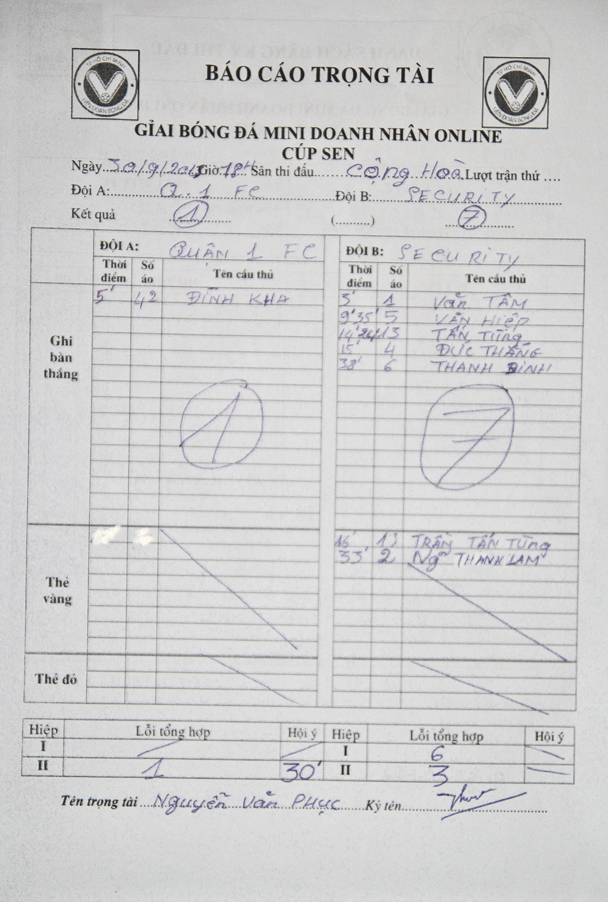 TP HỒ CHÍ MINH
LIÊN ĐOÀN BÓNG ĐÁ
BÁO CÁO TRỌNG TÀI
TP HỒ CHÍ MINH
LIÊN ĐOÀN BÓNG ĐÁ
GỈAI BÓNG ĐÁ MINI DOANH NHÂN ONLINE
CÚP SEN
Ngày 30/9/ Giờ: 18H Sân thi đấu CỘNG HOÀ Lượt trận thứ ....
Đội A: Q.1 FC Đội B: SECURITY
Kết quả 1 (..........) 7
ĐỘI A: QUÂN 1 FC ĐỘI B: SECURITY
Thời điểm Số áo Tên cầu thủ Thời điểm Số áo Tên cầu thủ
Ghi bàn thắng
5' 42 ĐÌNH KHA 5' 1 VĂN TÂM
9' 35' 5 VĂN HIỆP
14' 13 TẤN TÙNG
15' 4 ĐỨC THẮNG
38' 6 THANH BÌNH
1 7
Thẻ vàng
16' TRẦN TẤN TÙNG
33' 2 NG THANH LAM
Thẻ đỏ
Hiệp Lỗi tổng hợp Hội ý Hiệp Lỗi tổng hợp Hội ý
I I 6
II 1 30' II 3
Tên trọng tài Nguyễn Văn Phục Ký tên